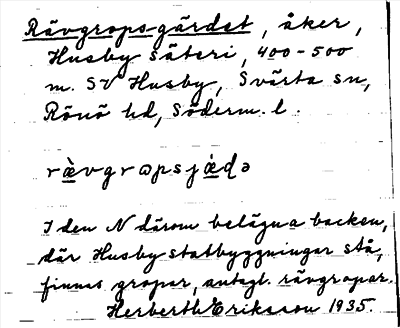 Rävgrops-gärdet, åker,
Husby säteri, 400-500
m. SV Husby, Svärta sn,
Rönö hd, Söderm. l.
rä̀vgrɷpsjä́ɖə
I den N därom belägna backen,
där Husby statbyggningar stå,
finnas gropar, antagl. rävgropar.
Herberth Eriksson 1935.